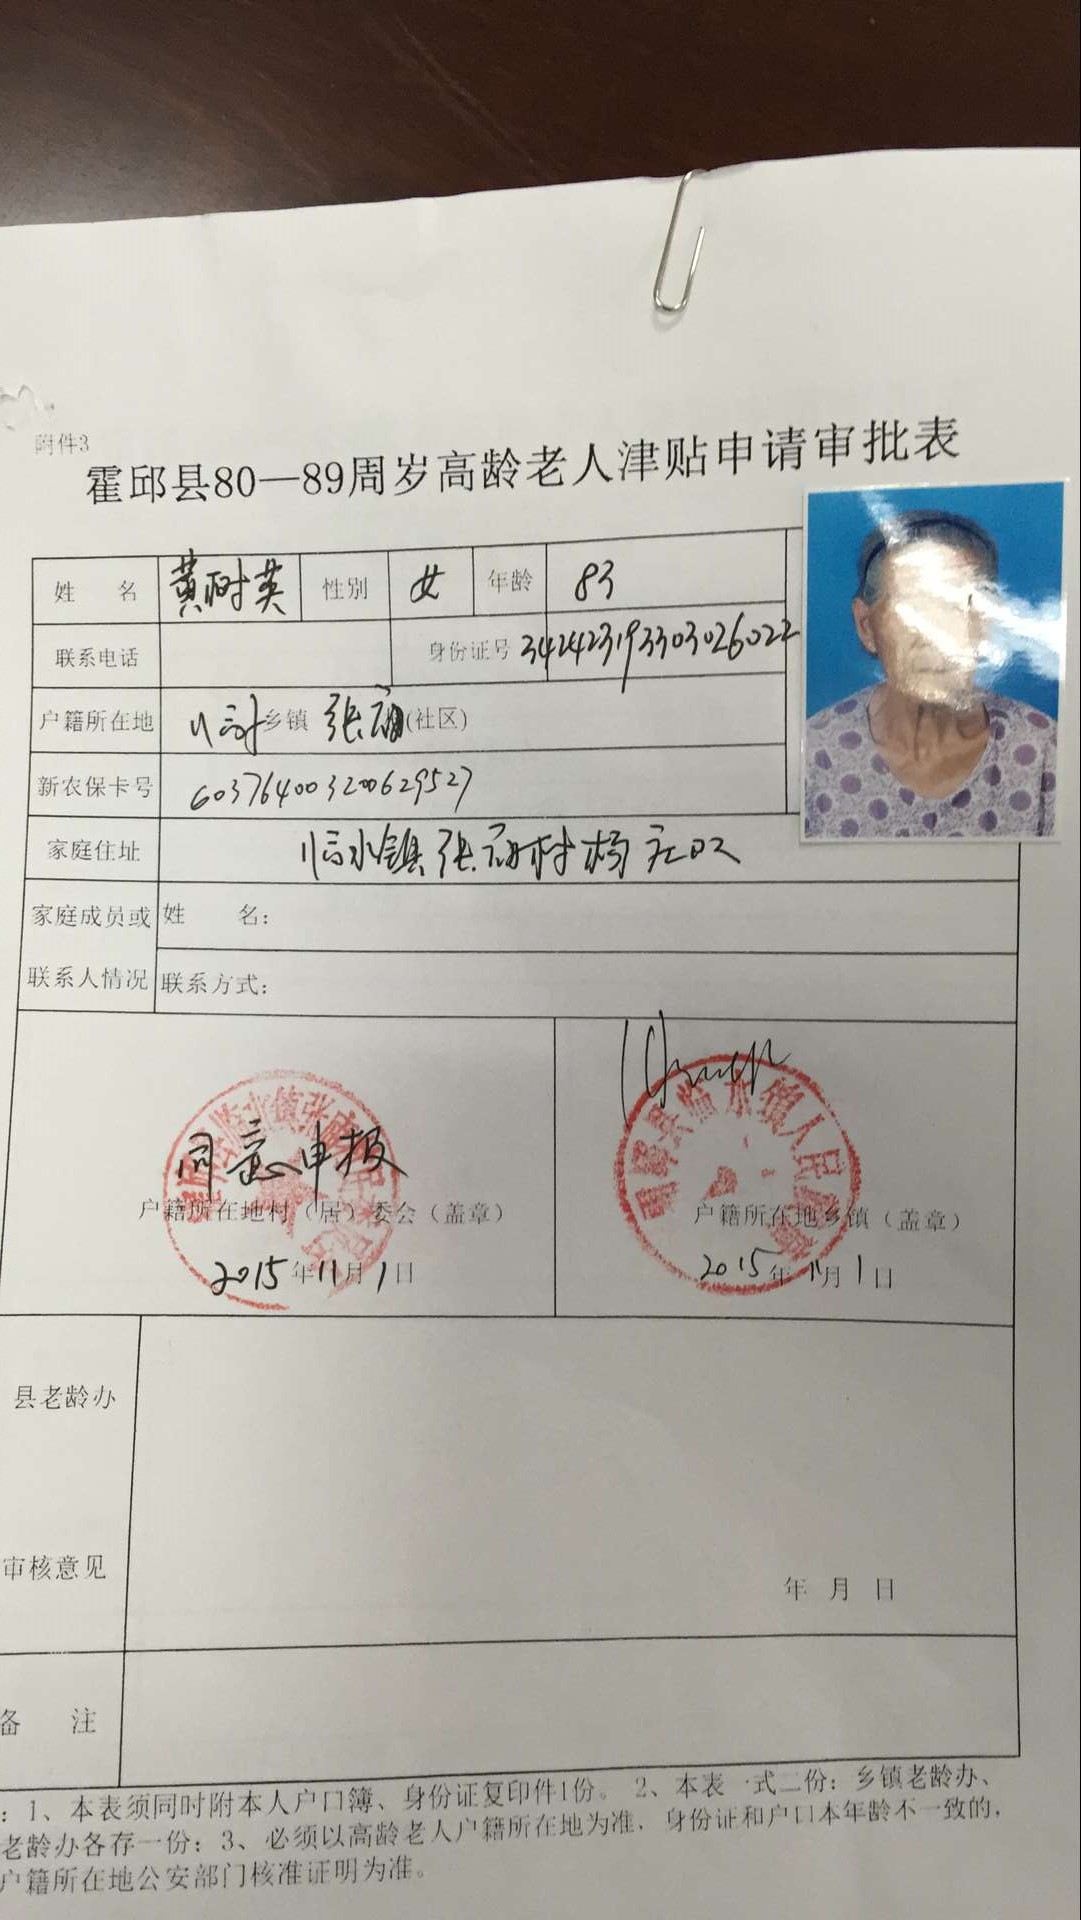 附件3
霍邱县80—89周岁高龄老人津贴申请审批表
姓 名 黄树英 性别 女 年龄 83
联系电话 身份证号 342423193303026022
户籍所在地 临 乡镇 张庙 (社区)
新农保卡号 603764003200629527
家庭住址 临水镇张庙村杨庄
家庭成员或 姓 名：
联系人情况 联系方式：
同意申报
户籍所在地村（居）委会（盖章） 户籍所在地乡镇（盖章）
2015年11月1日 2015年11月1日
县老龄办
审核意见
年 月 日
备 注
：1、本表须同时附本人户口簿、身份证复印件1份。 2、本表一式二份：乡镇老龄办、
老龄办各存一份；3、必须以高龄老人户籍所在地为准，身份证和户口本年龄不一致的，
户籍所在地公安部门核准证明为准。